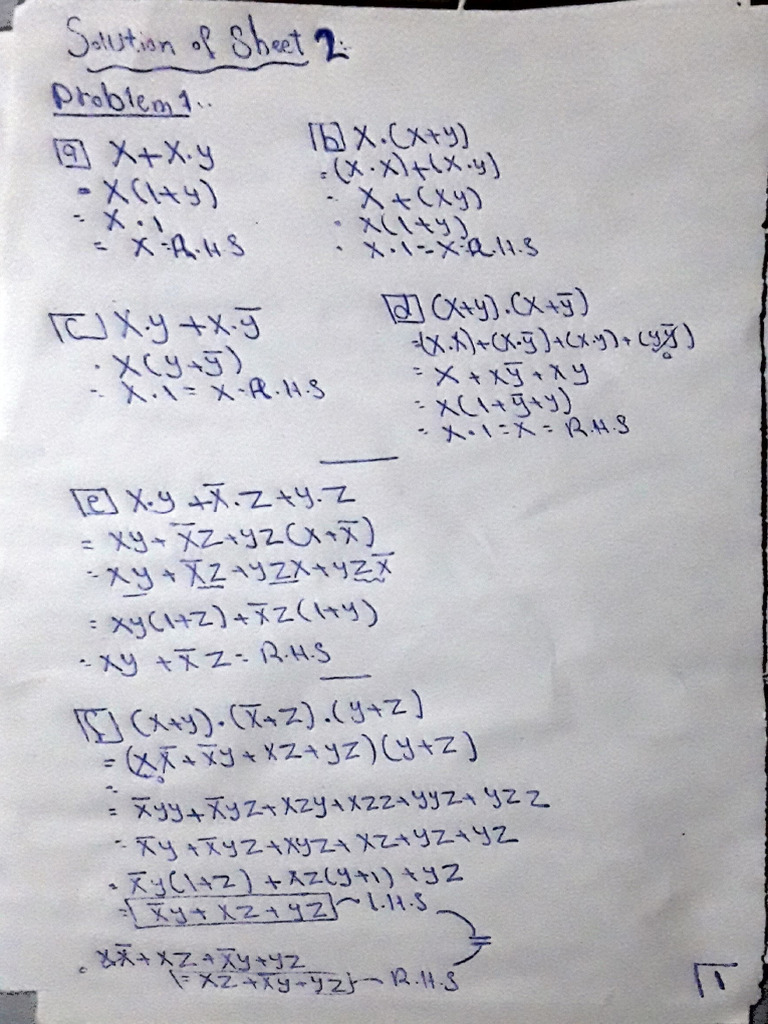 Solution of Sheet 2:
Problem 1..
[a] X+X.y
= X(1+y)
= X.1
= X=R.H.S
[b] X.(X+y)
=(X.X)+(X.y)
= X+(Xy)
= X(1+y)
= X.1=X=R.H.S
[c] X.y+X.ȳ
= X(y+ȳ)
= X.1=X=R.H.S
[d] (X+y).(X+ȳ)
=(X.X)+(X.ȳ)+(X.y)+(yȳ)
0
= X+Xȳ+Xy
= X(1+ȳ+y)
= X.1=X=R.H.S
[e] X.y+X̄.Z+y.Z
= Xy+X̄Z+yZ(X+X̄)
= Xy+X̄Z+yZX+yZX̄
= Xy(1+Z)+X̄Z(1+y)
= Xy+X̄Z=R.H.S
[f] (X+y).(X̄+Z).(y+Z)
=(XX̄+X̄y+XZ+yZ)(y+Z)
0
=
= X̄yy+X̄yZ+XZy+XZZ+yyZ+yZZ
= X̄y+X̄yZ+XyZ+XZ+yZ+yZ
= X̄y(1+Z)+XZ(y+1)+yZ
= X̄y+XZ+yZ L.H.S
=
XX̄+XZ+X̄y+yZ
= XZ+X̄y+yZ R.H.S
1